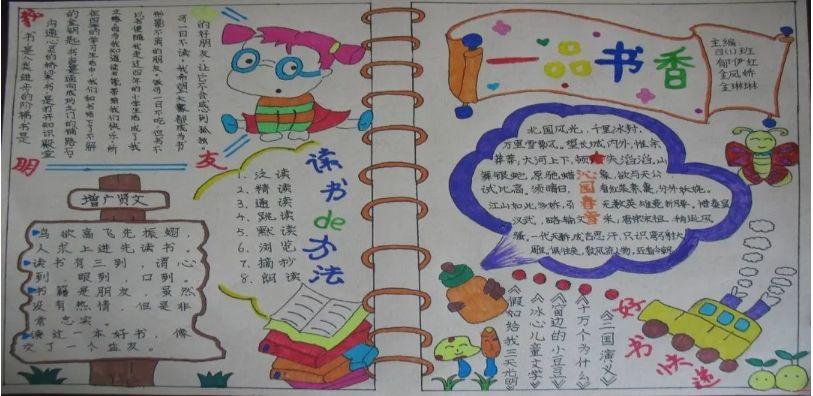 一品书香
主编:
四(1)班
郁伊虹
金凤娇
金琳琳
北国风光，千里冰封，
万里雪飘。望长城内外，惟余
莽莽，大河上下，顿失滔滔。山
舞银蛇，原驰蜡象，欲与天公
试比高。须晴日，看红装素裹，分外妖娆。
江山如此多娇，引无数英雄竞折腰。惜秦皇
汉武，略输文采，唐宗宋祖，稍逊风
骚。一代天骄成吉思汗，只识弯弓射大
雕。俱往矣，数风流人物，还看今朝
沁园春雪
好书快递
《三国演义》
《十万个为什么》
《窗边的小豆豆》
《冰心儿童文学》
《假如给我三天光明》
读书de方法
1. 泛读
2. 精读
3. 通读
4. 跳读
5. 默读
6. 浏览
7. 摘抄
8. 朗读
明
友
书是人类进步的阶梯书是
沟通心灵的桥梁书是打开知识殿堂
的好朋友，让它不会感到孤独
增广贤文
鸟欲高飞先振翅，
人求上进先读书。
读书有三到，谓心
到，眼到，口到。
书籍是朋友，虽然
没有热情，但是非
常忠实。
读过一本好书，像
交了一个益友。